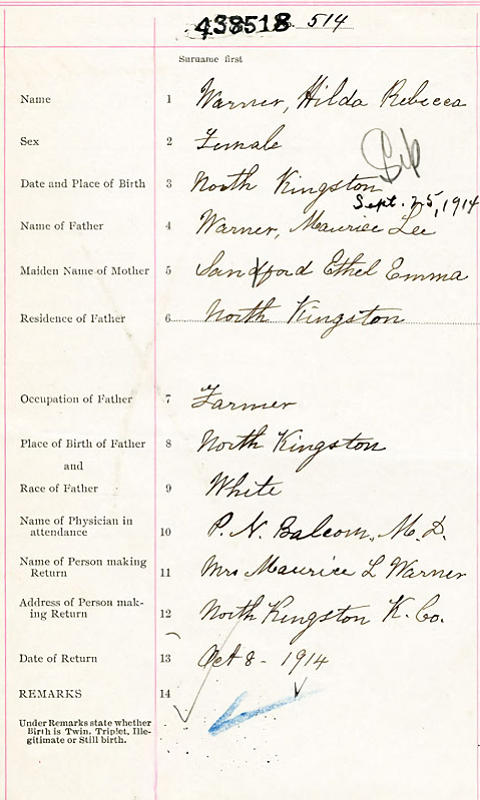 438518 514
Surname first
Name 1 Warner, Hilda Rebecca
Sex 2 Female
Date and Place of Birth 3 North Kingston
Sept. 25, 1914
Name of Father 4 Warner, Maurice Lee
Maiden Name of Mother 5 Sandford Ethel Emma
Residence of Father 6 North Kingston
Occupation of Father 7 Farmer
Place of Birth of Father 8 North Kingston
and
Race of Father 9 White
Name of Physician in
attendance 10 P. N. Balcom, M. D.
Name of Person making
Return 11 Mrs Maurice L Warner
Address of Person mak-
ing Return 12 North Kingston K. Co.
Date of Return 13 Oct 8 - 1914
REMARKS 14
Under Remarks state whether
Birth is Twin, Triplet, Ille-
gitimate or Still birth.